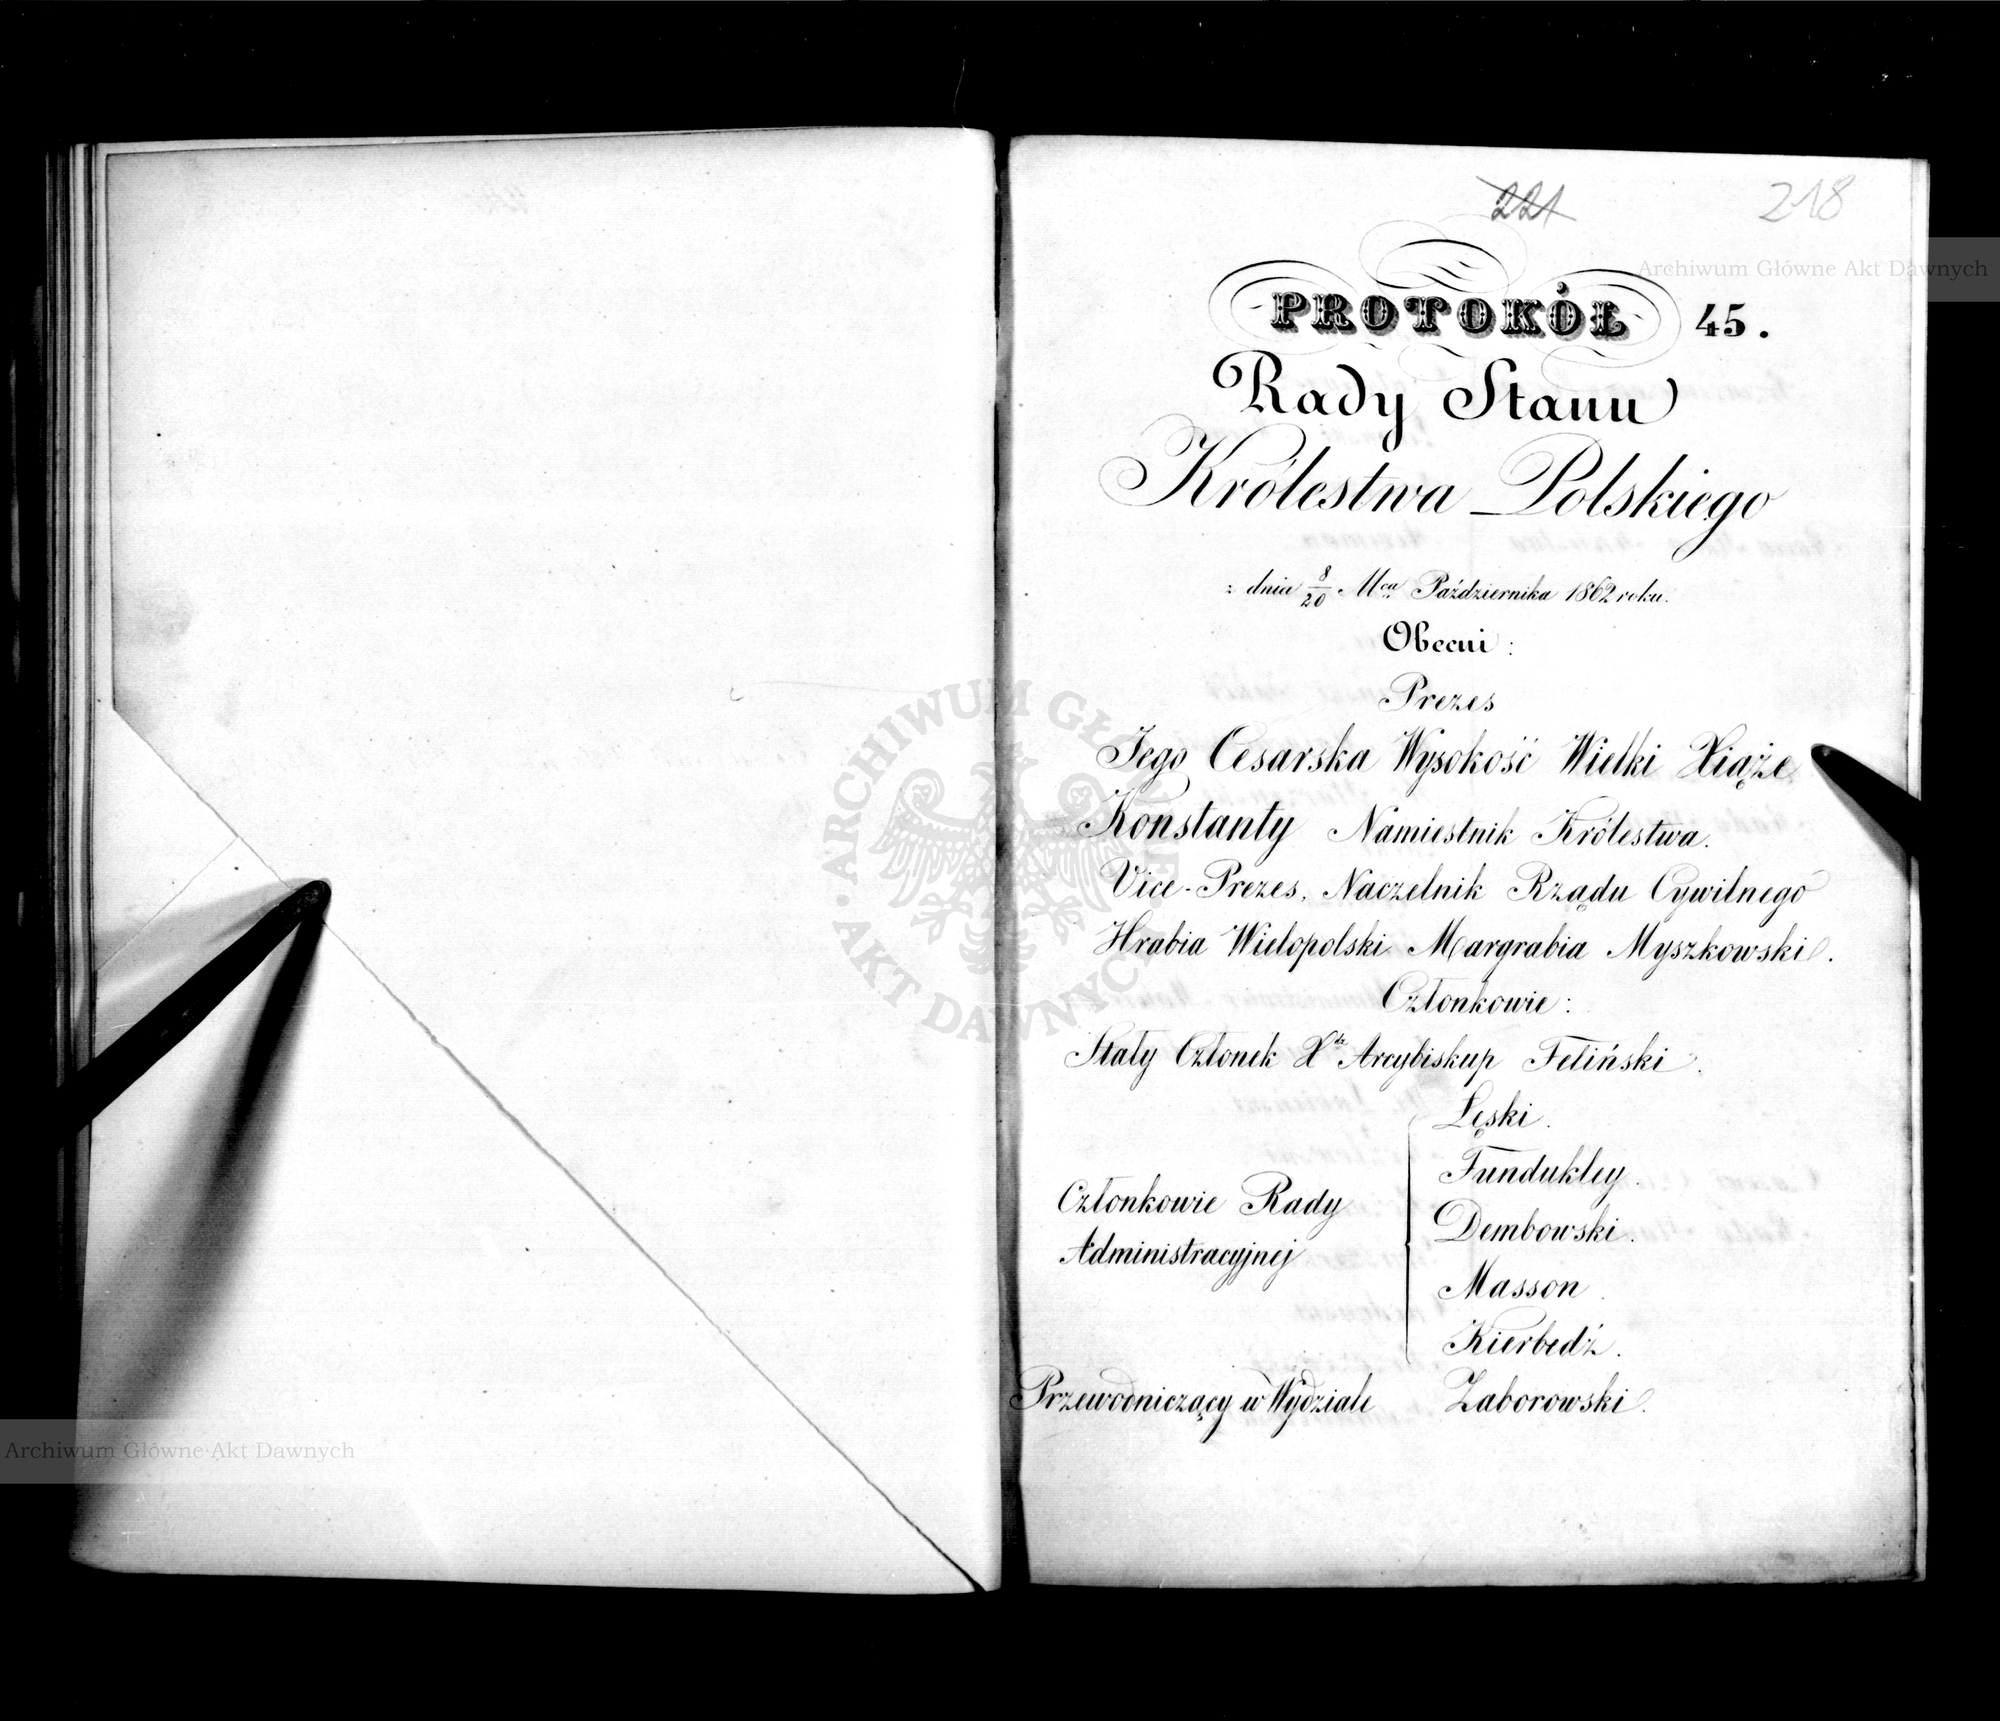 221 218
Archiwum Główne Akt Dawnych
PROTOKÓŁ 45.
Rady Stanu
Królestwa Polskiego
z dnia 8/20 Mca Października 1862 roku.
Obecni:
Prezes
Jego Cesarska Wysokość Wielki Xiąże
Konstanty Namiestnik Królestwa.
Vice-Prezes, Naczelnik Rządu Cywilnego
Hrabia Wielopolski Margrabia Myszkowski.
Członkowie:
Stały Członek Xdz Arcybiskup Feliński.
Łęski.
Fundukley.
Członkowie Rady
Dembowski.
Administracyjnej
Masson.
Kierbedź.
Przewodniczący w Wydziale Zaborowski.
ARCHIWUM GŁÓWNE AKT DAWNYCH
Archiwum Główne Akt Dawnych